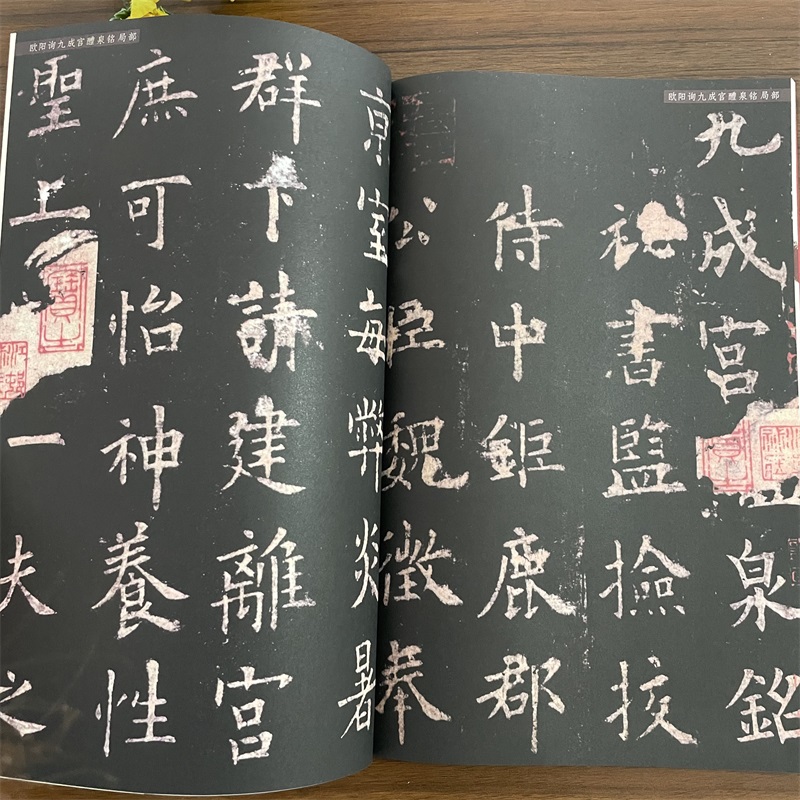 欧阳询九成宫醴泉铭局部
九成宮泉銘
秘書監撿挍
侍中鉅鹿郡
公臣魏徵奉
欧阳询九成宫醴泉铭局部
京室每弊炎暑
群下請建離宮
庶可怡神養性
聖上一夫之